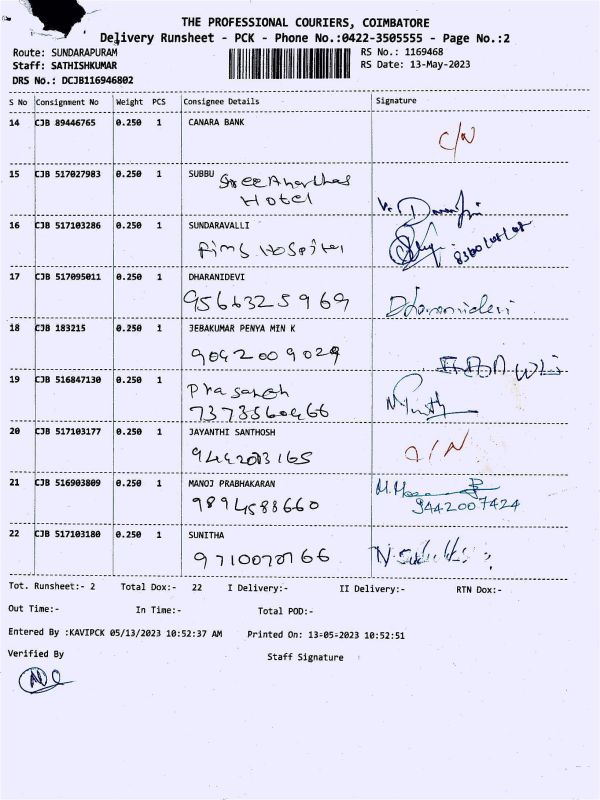 THE PROFESSIONAL COURIERS, COIMBATORE
Delivery Runsheet - PCK - Phone No.:0422-3505555 - Page No.:2
Route: SUNDARAPURAM RS No.: 1169468
Staff: SATHISHKUMAR RS Date: 13-May-2023
DRS No.: DCJB116946802
S No Consignment No Weight PCS Consignee Details Signature
14 CJB 89446765 0.250 1 CANARA BANK
C/N
15 CJB 517027983 0.250 1 SUBBU Sree
Hotel
16 CJB 517103286 0.250 1 SUNDARAVALLI
Rims Hospitel
17 CJB 517095011 0.250 1 DHARANIDEVI
9566325969 Dharanidevi
18 CJB 183215 0.250 1 JEBAKUMAR PENYA MIN K
9042009029
19 CJB 516847130 0.250 1 Prasanth
7373560466
20 CJB 517103177 0.250 1 JAYANTHI SANTHOSH
9442013165
21 CJB 516903809 0.250 1 MANOJ PRABHAKARAN
9894588660 9442007424
22 CJB 517103180 0.250 1 SUNITHA
9710070166
Tot. Runsheet:- 2 Total Dox:- 22 I Delivery:- II Delivery:- RTN Dox:-
Out Time:- In Time:- Total POD:-
Entered By :KAVIPCK 05/13/2023 10:52:37 AM Printed On: 13-05-2023 10:52:51
Verified By Staff Signature